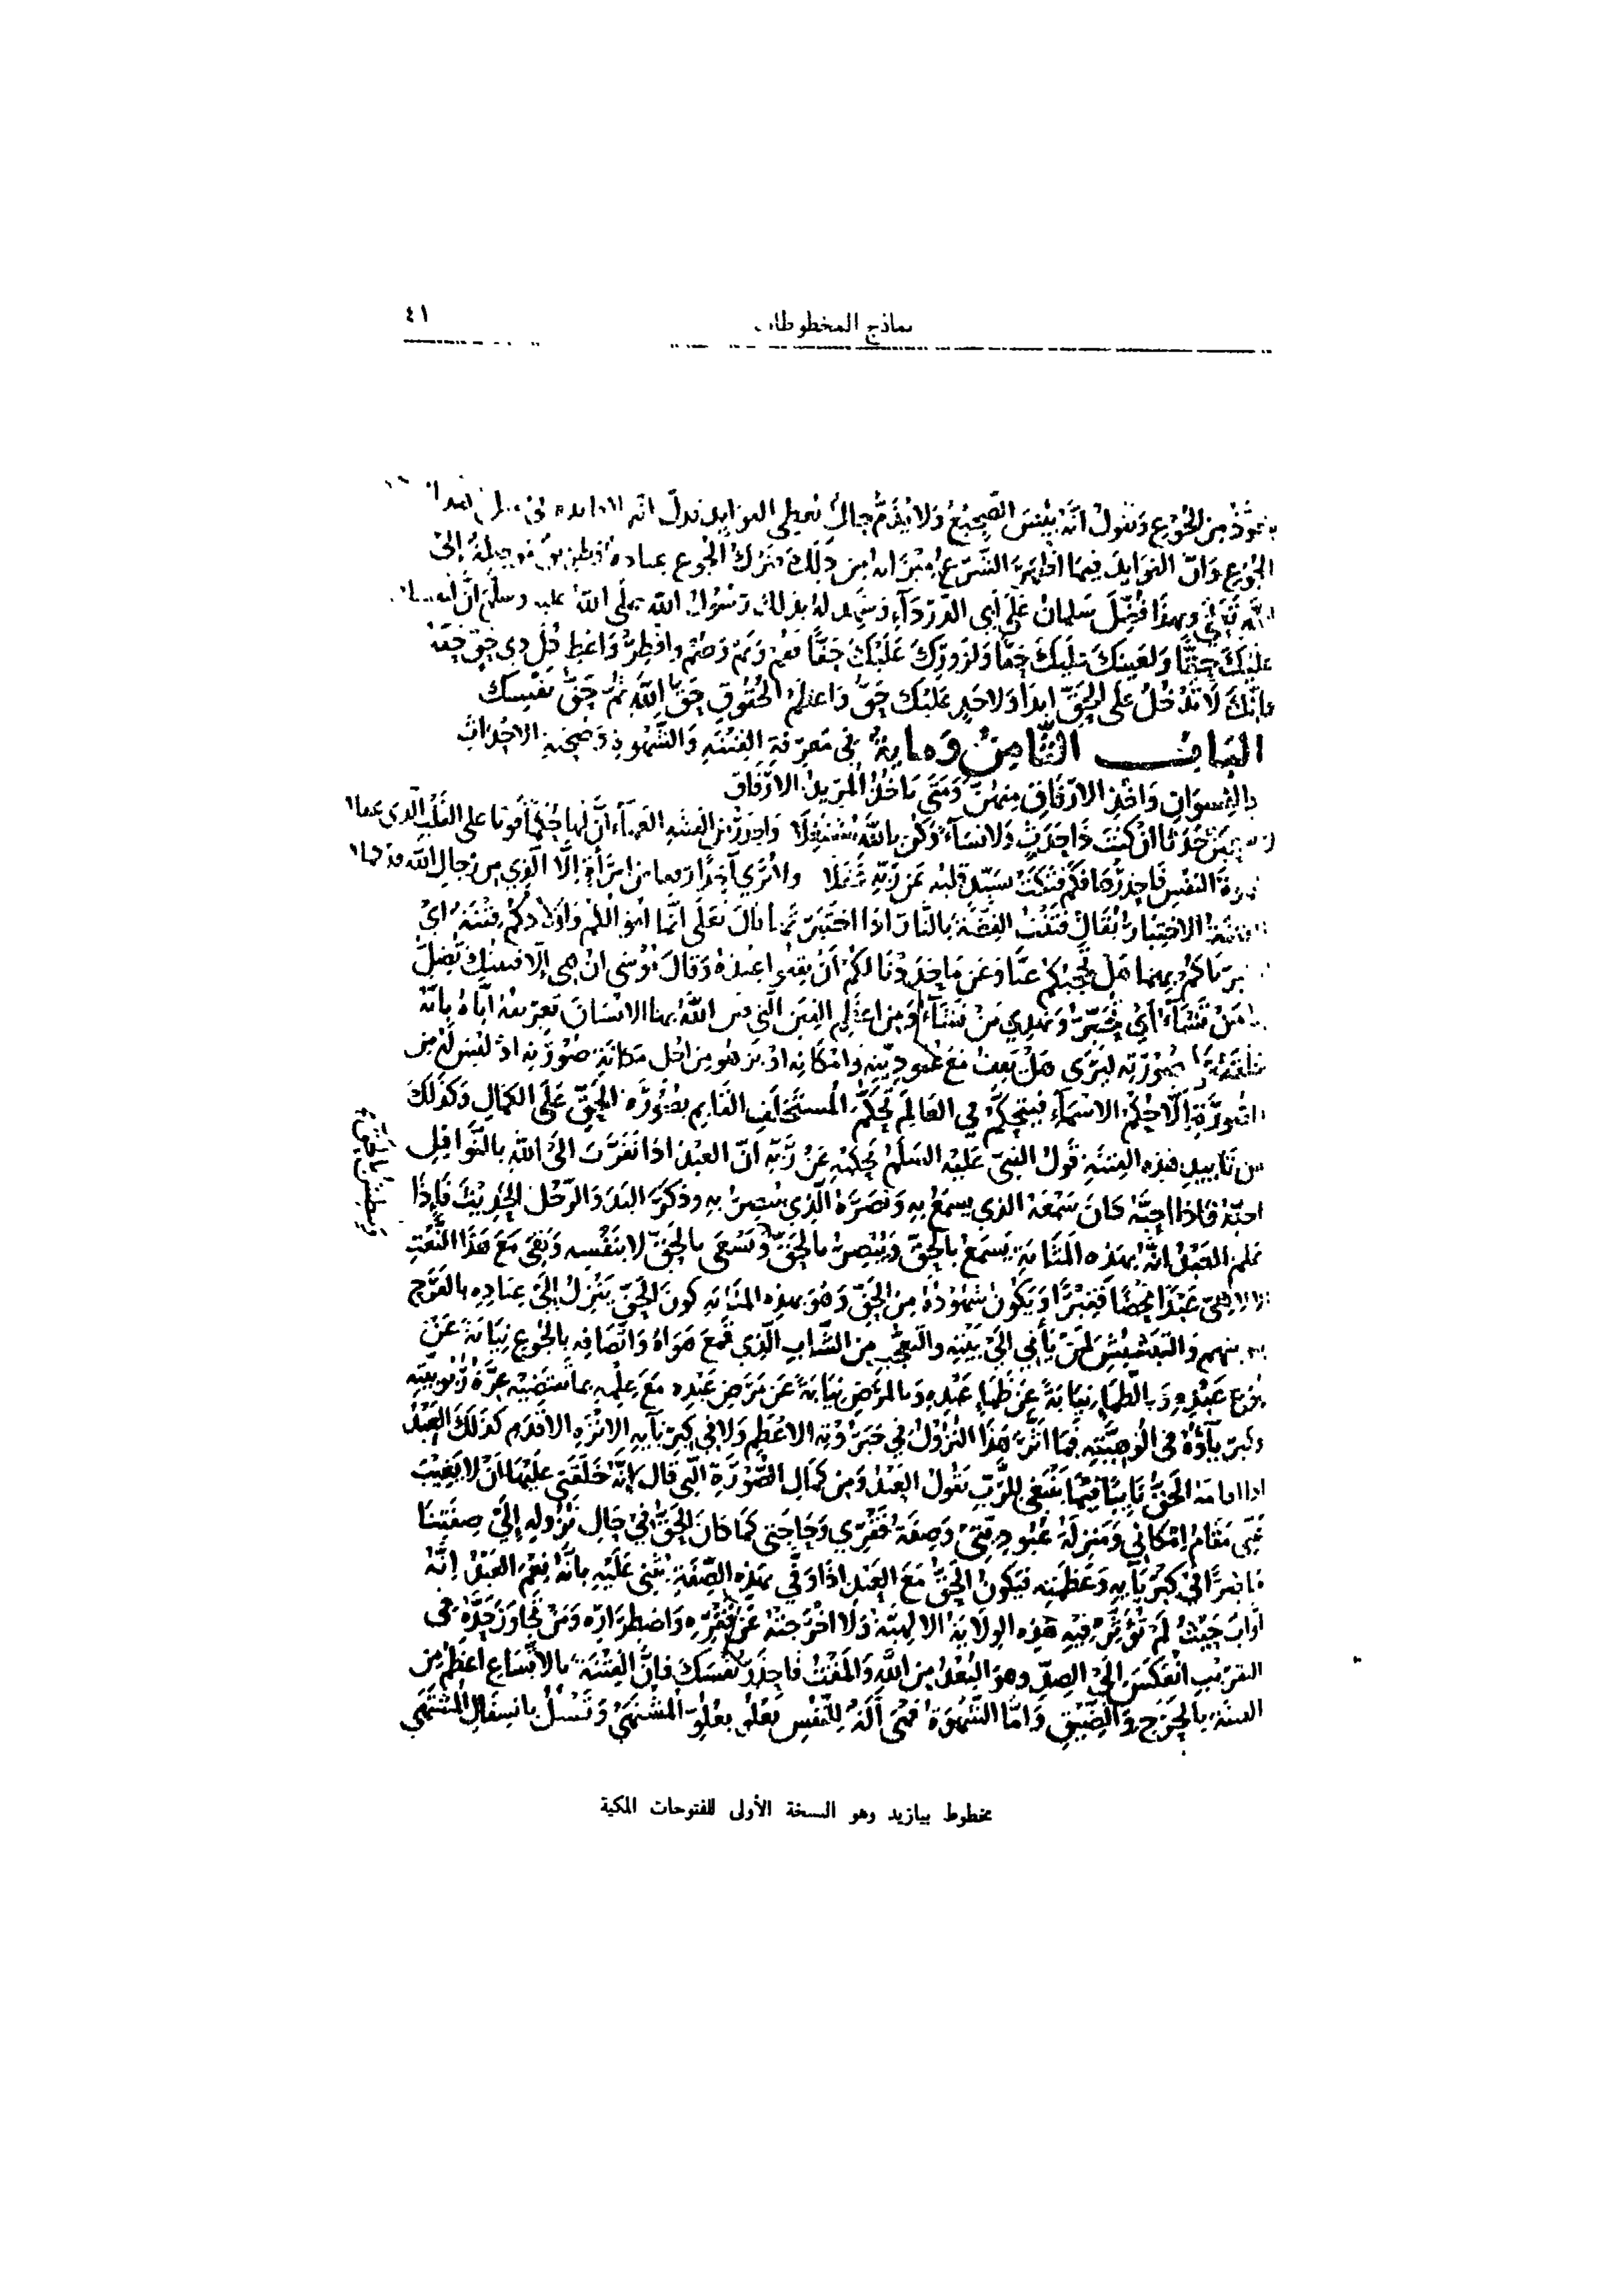 ٤١
نماذج المخطوطات
من الجوع ويقول انه بئس الضجيع
الجوع وان الفوايد فيما اظهر الشرع ميزانه من ذلك فترك الجوع عباده إلى
وبهذا فضل سلمان على أبي الدرداء وشهد له بذلك رسول الله صلى الله عليه وسلم ان
عليك حقا ولعينك عليك حقا ولزورك عليك حقا فقم ونم وصم وافطر واعط كل ذي حق حقه
فانك لا تدخل على الحق ابدا ولاحد عليك حق واعظم الحقوق حق الله ثم حق نفسك
الباب الثامن وماية في معرفة الفتنة والشهوة وصحبة الاحداث
بالنسوان واخذ الارفاق منهن ومتى ياخذ المريد الارفاق
لا تصحبن حدثا ان كنت ذا حدث ولا نساء وكن بالله مشتغلا واحذر من الفتنة العمياء ان لها حكما قويا على القلب الذي عقلا
النفس فاحذرها فكم فتكت بسيد قلبه عن ربه غفلا ولا ترى آخذا رفقا من امرأة إلا الذي من رجال الله
الفتنة الاختبار يقال فتنت الفضة بالنار اذا اختبرتها قال تعلى انما اموالكم واولادكم فتنة اي
اختبرناكم بهما هل تحجبكم عنا وعن ما حددنا لكم أن تقفوا عنده وقال موسى ان هي إلا فتنتك تضل
بها من تشاء أي تحير وتهدي من تشاء ومن اعظم الفتن التي فتن الله بها الانسان تعريفه اياه بانه
خلقه على صورته ليرى هل يقف مع عبوديته وامكانه او يزهو من اجل مكانة صورته اذ ليس له من
الصورة إلا حكم الاسماء فيتحكم في العالم تحكم المستخلف القايم بصورة الحق على الكمال وكذلك
من تاييد هذه الفتنة قول النبي عليه السلم يحكيه عن ربه ان العبد اذا تقرب الى الله بالنوافل
احبه فاذا احبه كان سمعه الذي يسمع به وبصره الذي يبصر به وذكر اليد والرجل الحديث فإذا
علم العبد انه بهذه المثابة يسمع بالحق ويبصر بالحق ويسعى بالحق لا بنفسه وبقى مع هذا النعت
ويبطش بالحق
الالاهي عبدا محضا فقيرا ويكون شهوده من الحق وهو بهذه المثابة كون الحق ينزل إلى عباده بالفرح
بتوبتهم والتبشبش لمن يأتي الى بيته والتعجب من الشاب الذي قمع هواه واتصافه بالجوع نيابة عن
جوع عبده وبالظمإ نيابة عن ظمإ عبده وبالمرض نيابة عن مرض عبده مع علمه بما تقتضيه عزة ربوبيته
وكبرياؤه في الوهيته فما اثر هذا النزول في جبروته الاعظم ولا في كبريآيه الانزه الاقدم كذلك العبد
اذا اقامه الحق نايبا فيما ينبغي للرب يقول العبد ومن كمال الصورة التي قال إنه خلقني عليها ان لا يغيب
عني مقام إمكاني ومنزلة عبوديتي وصفة فقري وحاجتي كما كان الحق في حال نزوله إلى صفتنا
حاضرا في كبريآيه وعظمته فيكون الحق مع العبد اذا وفى بهذه الصفة يثني عليه بانه نعم العبد إنه
أواب حيث لم تؤثر فيه هذه الولاية الالهية ولا اخرجته عن فقره واضطراره ومن تجاوز حده في
التقريب انعكس إلى الضد وهو البعد من الله والمقت فاحذر نفسك فإن الفتنة بالاتساع اعظم من
الفتنة بالحرج والضيق واما الشهوة فهي آلة للنفس تعلو بعلو المشتهى وتسفل باستفال المشتهى
مخطوط بيازيد وهو النسخة الأولى للفتوحات المكية